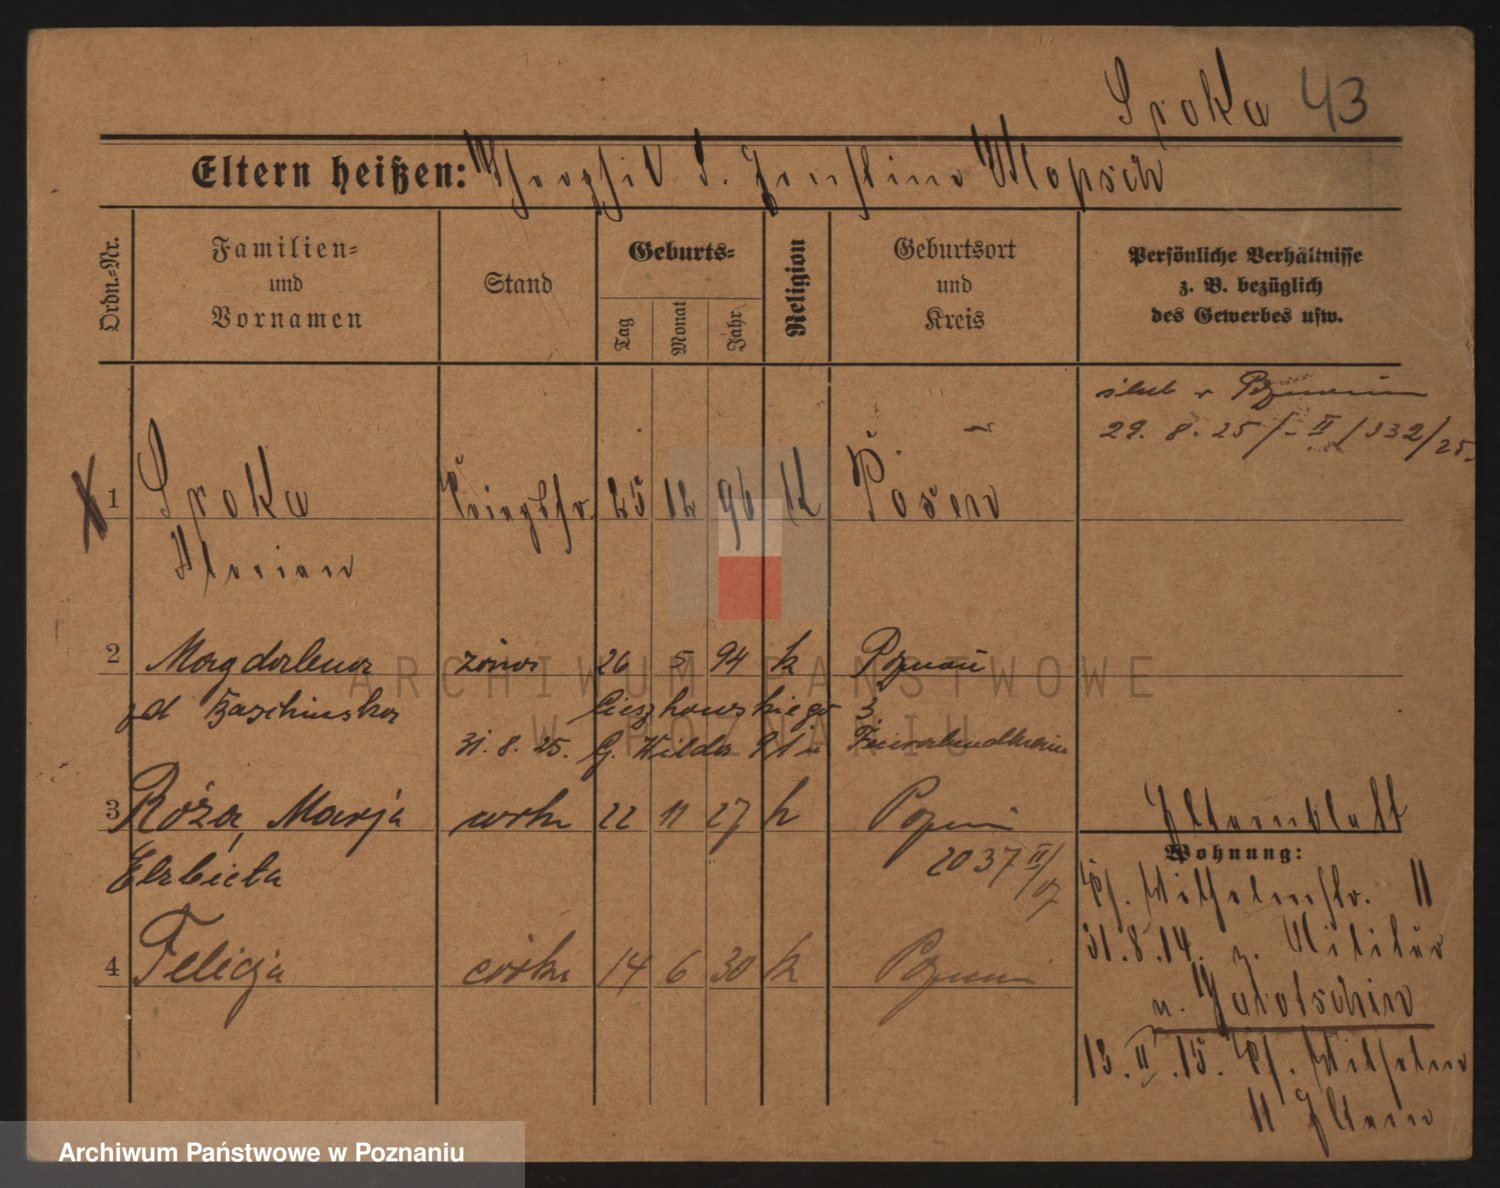 Sroka 43
Eltern heißen: Theophil u. Faustina Klopsch
Ordn.=Nr.
Familien=
und
Vornamen
Stand
Geburts=
Tag
Monat
Jahr
Religion
Geburtsort
und
Kreis
Persönliche Verhältnisse
z. B. bezüglich
des Gewerbes usw.
ślub w Poznaniu
29. 8. 25 /-II/332/25.
1 Sroka 25 12 96 k Posen
Florian
2 Magdalena żona 26 5 94 k Poznań
zd
Cieszkowskiego 3
31. 8. 25. G. Wilda
3 Róża, Marja córka 22 11 27 k Poznań
Elżbieta
2037 II/27
4 Felicja córka 14 6 30 k Poznań
Elternblatt
Wohnung:
Wilhelmstr. 11
31. 8. 14. z. Militär
n. Jarotschin
13. II. 15. Wilhelm
11 Eltern
ARCHIWUM PAŃSTWOWE
W POZNANIU
Archiwum Państwowe w Poznaniu